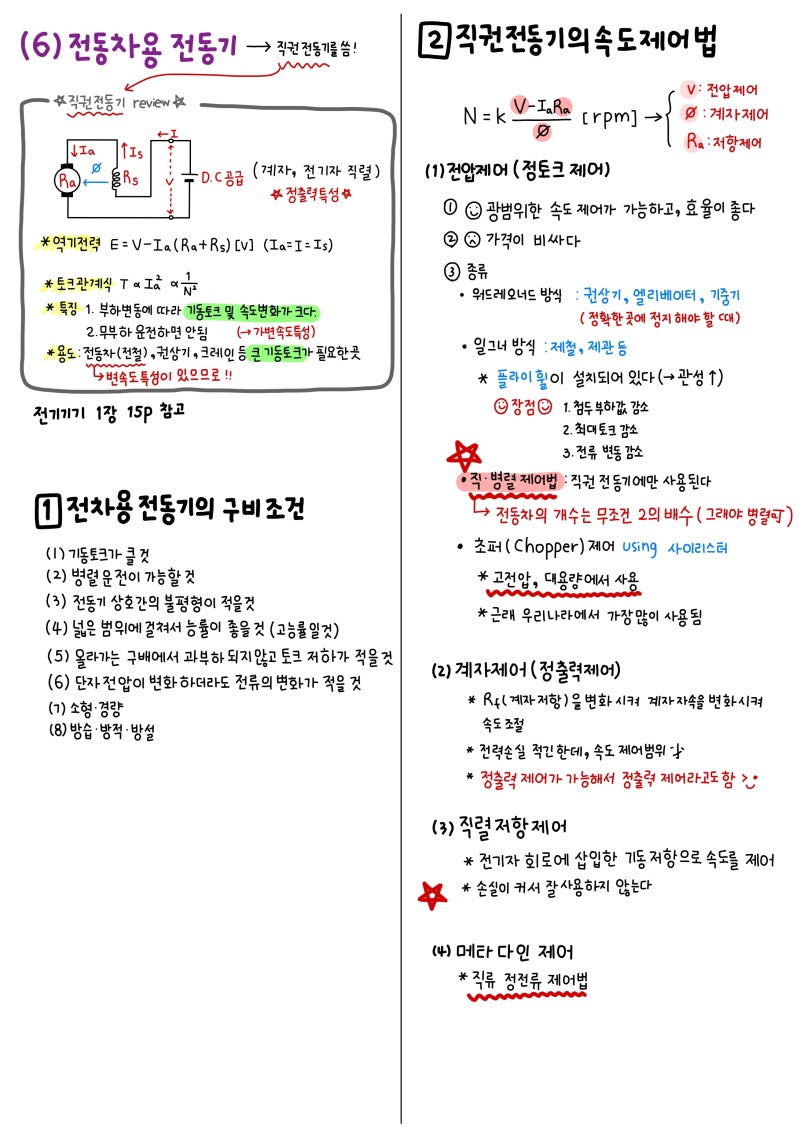 (6) 전동차용 전동기 → 직권전동기를 씀!
☆직권전동기 review☆
↓Ia
↑Is
←I
Ra
ø
Rs
V
D.C공급
(계자, 전기자 직렬)
★정출력특성★
*역기전력 E=V-Ia(Ra+Rs)[V] (Ia=I=Is)
*토크관계식 T ∝ Ia² ∝ 1/N²
*특징 1. 부하변동에 따라 기동토크 및 속도변화가 크다.
2.무부하 운전하면 안됨 (→가변속도특성)
*용도:전동차(전철),권상기,크레인 등 큰 기동토크가 필요한곳
↳변속도특성이 있으므로!!
전기기기 1장 15p 참고
1 전차용 전동기의 구비조건
(1) 기동토크가 클 것
(2) 병렬 운전이 가능할 것
(3) 전동기 상호간의 불평형이 적을것
(4) 넓은 범위에 걸쳐서 능률이 좋을 것 (고능률일것)
(5) 올라가는 구배에서 과부하 되지않고 토크 저하가 적을 것
(6) 단자 전압이 변화 하더라도 전류의 변화가 적을 것
(7) 소형·경량
(8) 방습·방적·방설
2 직권전동기의 속도제어법
N = k (V-IaRa)/ø [rpm] →
V: 전압제어
ø: 계자제어
Ra:저항제어
(1) 전압제어 (정토크 제어)
① 광범위한 속도 제어가 가능하고, 효율이 좋다
② 가격이 비싸다
③ 종류
• 워드레오너드 방식 : 권상기, 엘리베이터, 기중기
(정확한곳에 정지 해야 할 때)
• 일그너 방식 : 제철, 제관 등
* 플라이 휠이 설치되어 있다 (→관성↑)
장점 1.첨두부하값 감소
2.최대토크 감소
3.전류 변동 감소
•직·병렬 제어법 :직권 전동기에만 사용된다
↳ 전동차의 개수는 무조건 2의 배수 (그래야 병렬可)
• 초퍼(Chopper)제어 using 사이리스터
*고전압, 대용량에서 사용
*근래 우리나라에서 가장많이 사용됨
(2) 계자제어 (정출력제어)
* Rf(계자저항)을 변화 시켜 계자자속을 변화시켜
속도조절
* 전력손실 적긴한데, 속도 제어범위↓
* 정출력 제어가 가능해서 정출력 제어라고도함
(3) 직렬저항제어
* 전기자 회로에 삽입한 기동저항으로 속도를 제어
* 손실이 커서 잘 사용하지 않는다
(4) 메타 다인 제어
* 직류 정전류 제어법